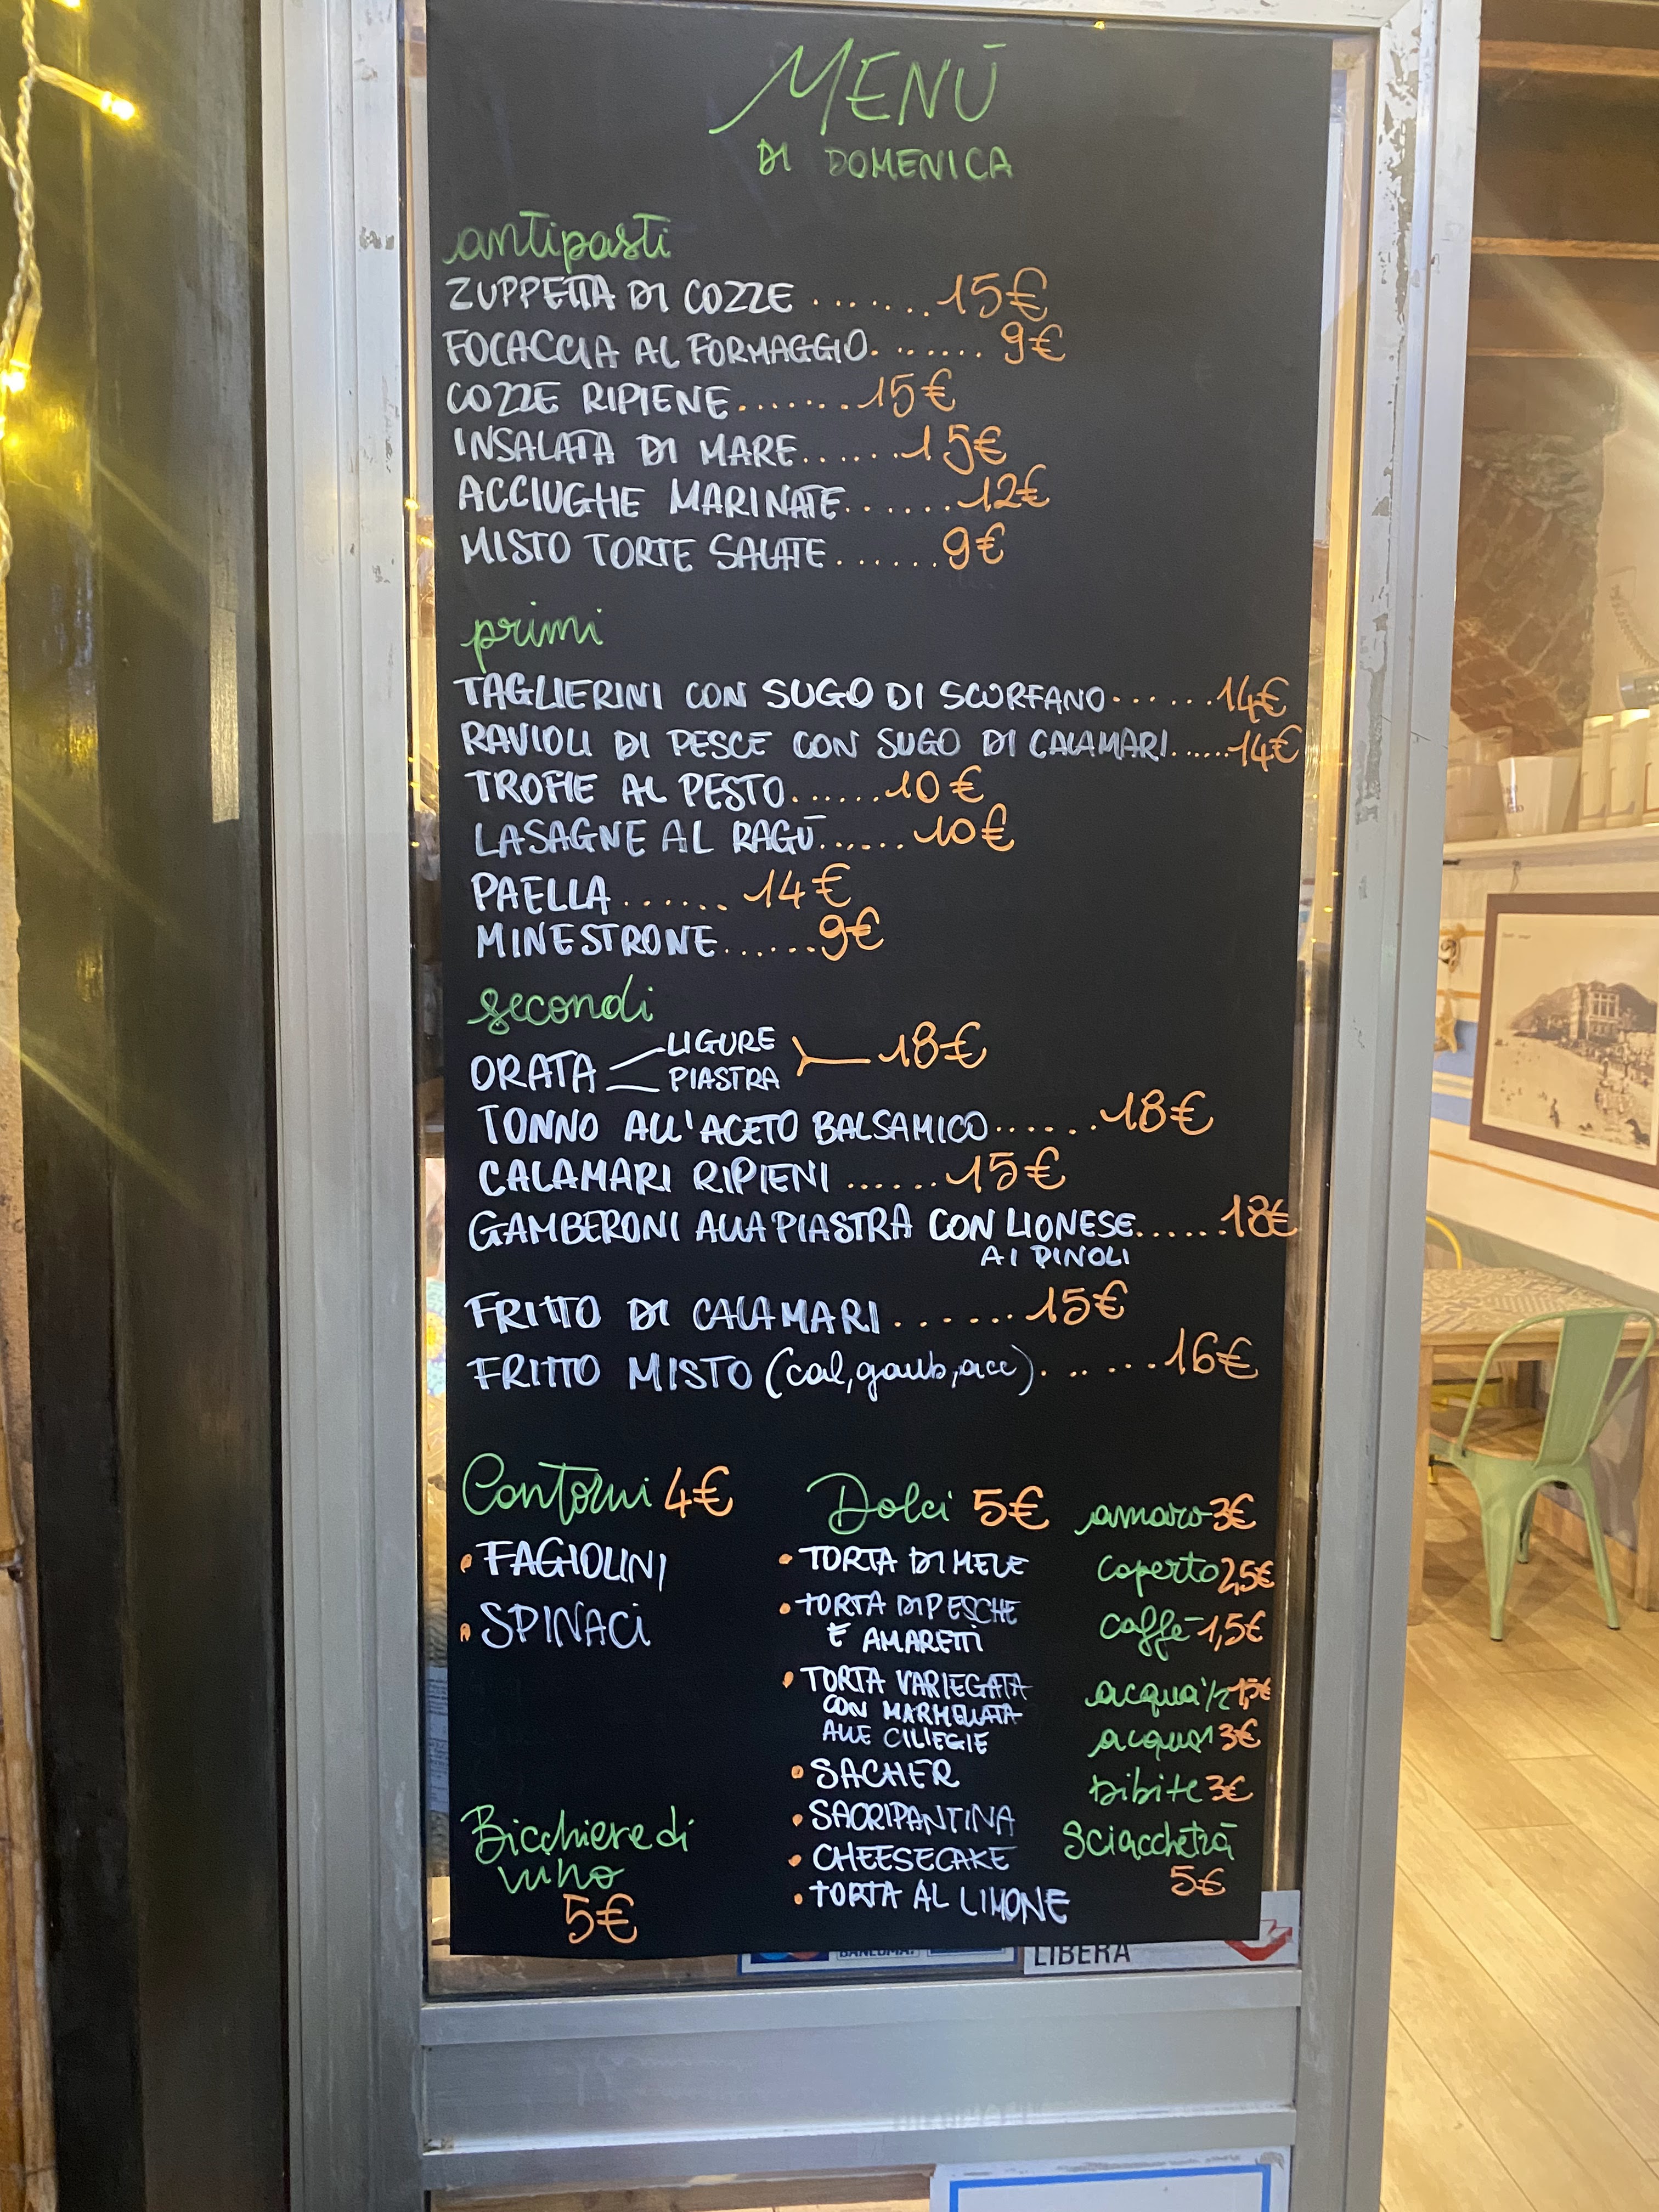 MENŪ
DI DOMENICA
antipasti
ZUPPETTA DI COZZE ....... 15€
FOCACCIA AL FORMAGGIO....... 9€
COZZE RIPIENE....... 15€
INSALATA DI MARE...... 15€
ACCIUGHE MARINATE....... 12€
MISTO TORTE SALATE ...... 9€
primi
TAGLIERINI CON SUGO DI SCORFANO...... 14€
RAVIOLI DI PESCE CON SUGO DI CALAMARI...... 14€
TROFIE AL PESTO...... 10€
LASAGNE AL RAGŪ...... 10€
PAELLA ...... 14€
MINESTRONE...... 9€
secondi
ORATA LIGURE PIASTRA 18€
TONNO ALL'ACETO BALSAMICO...... 18€
CALAMARI RIPIENI ...... 15€
GAMBERONI ALLA PIASTRA CON LIONESE...... 18€
AI PINOLI
FRITTO DI CALAMARI ...... 15€
FRITTO MISTO (cal,gamb,acc)...... 16€
Contorni 4€
• FAGIOLINI
• SPINACi
Bicchiere di
vino
5€
Dolci 5€
• TORTA DI MELE
• TORTA DI PESCHE
E AMARETTI
• TORTA VARIEGATA
CON MARMELLATA
ALLE CILIEGIE
• SACHER
• SACRIPANTINA
• CHEESECAKE
• TORTA AL LIMONE
amaro 3€
coperto 2,5€
caffē 1,5€
acqua ½ 1,5€
acqua 1 3€
bibite 3€
Sciacchetrā
5€
BANCOMAT
LIBERA